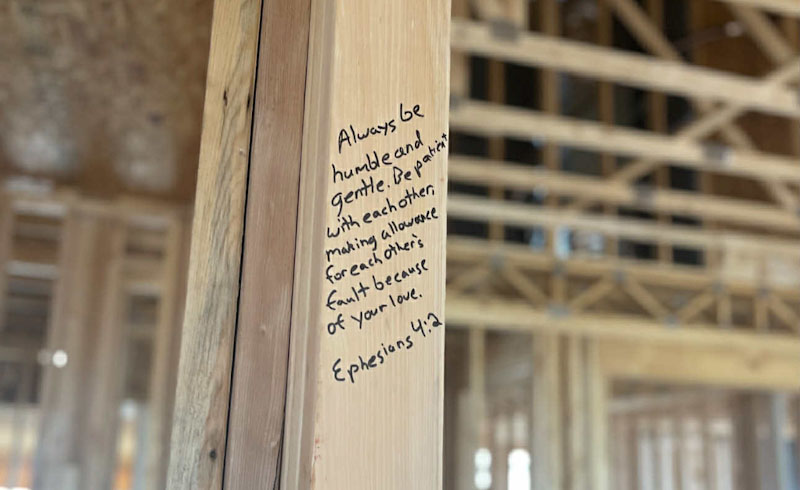 Always be
humble and
gentle. Be patient
with each other,
making allowance
for each other's
fault because
of your love.
Ephesians 4:2